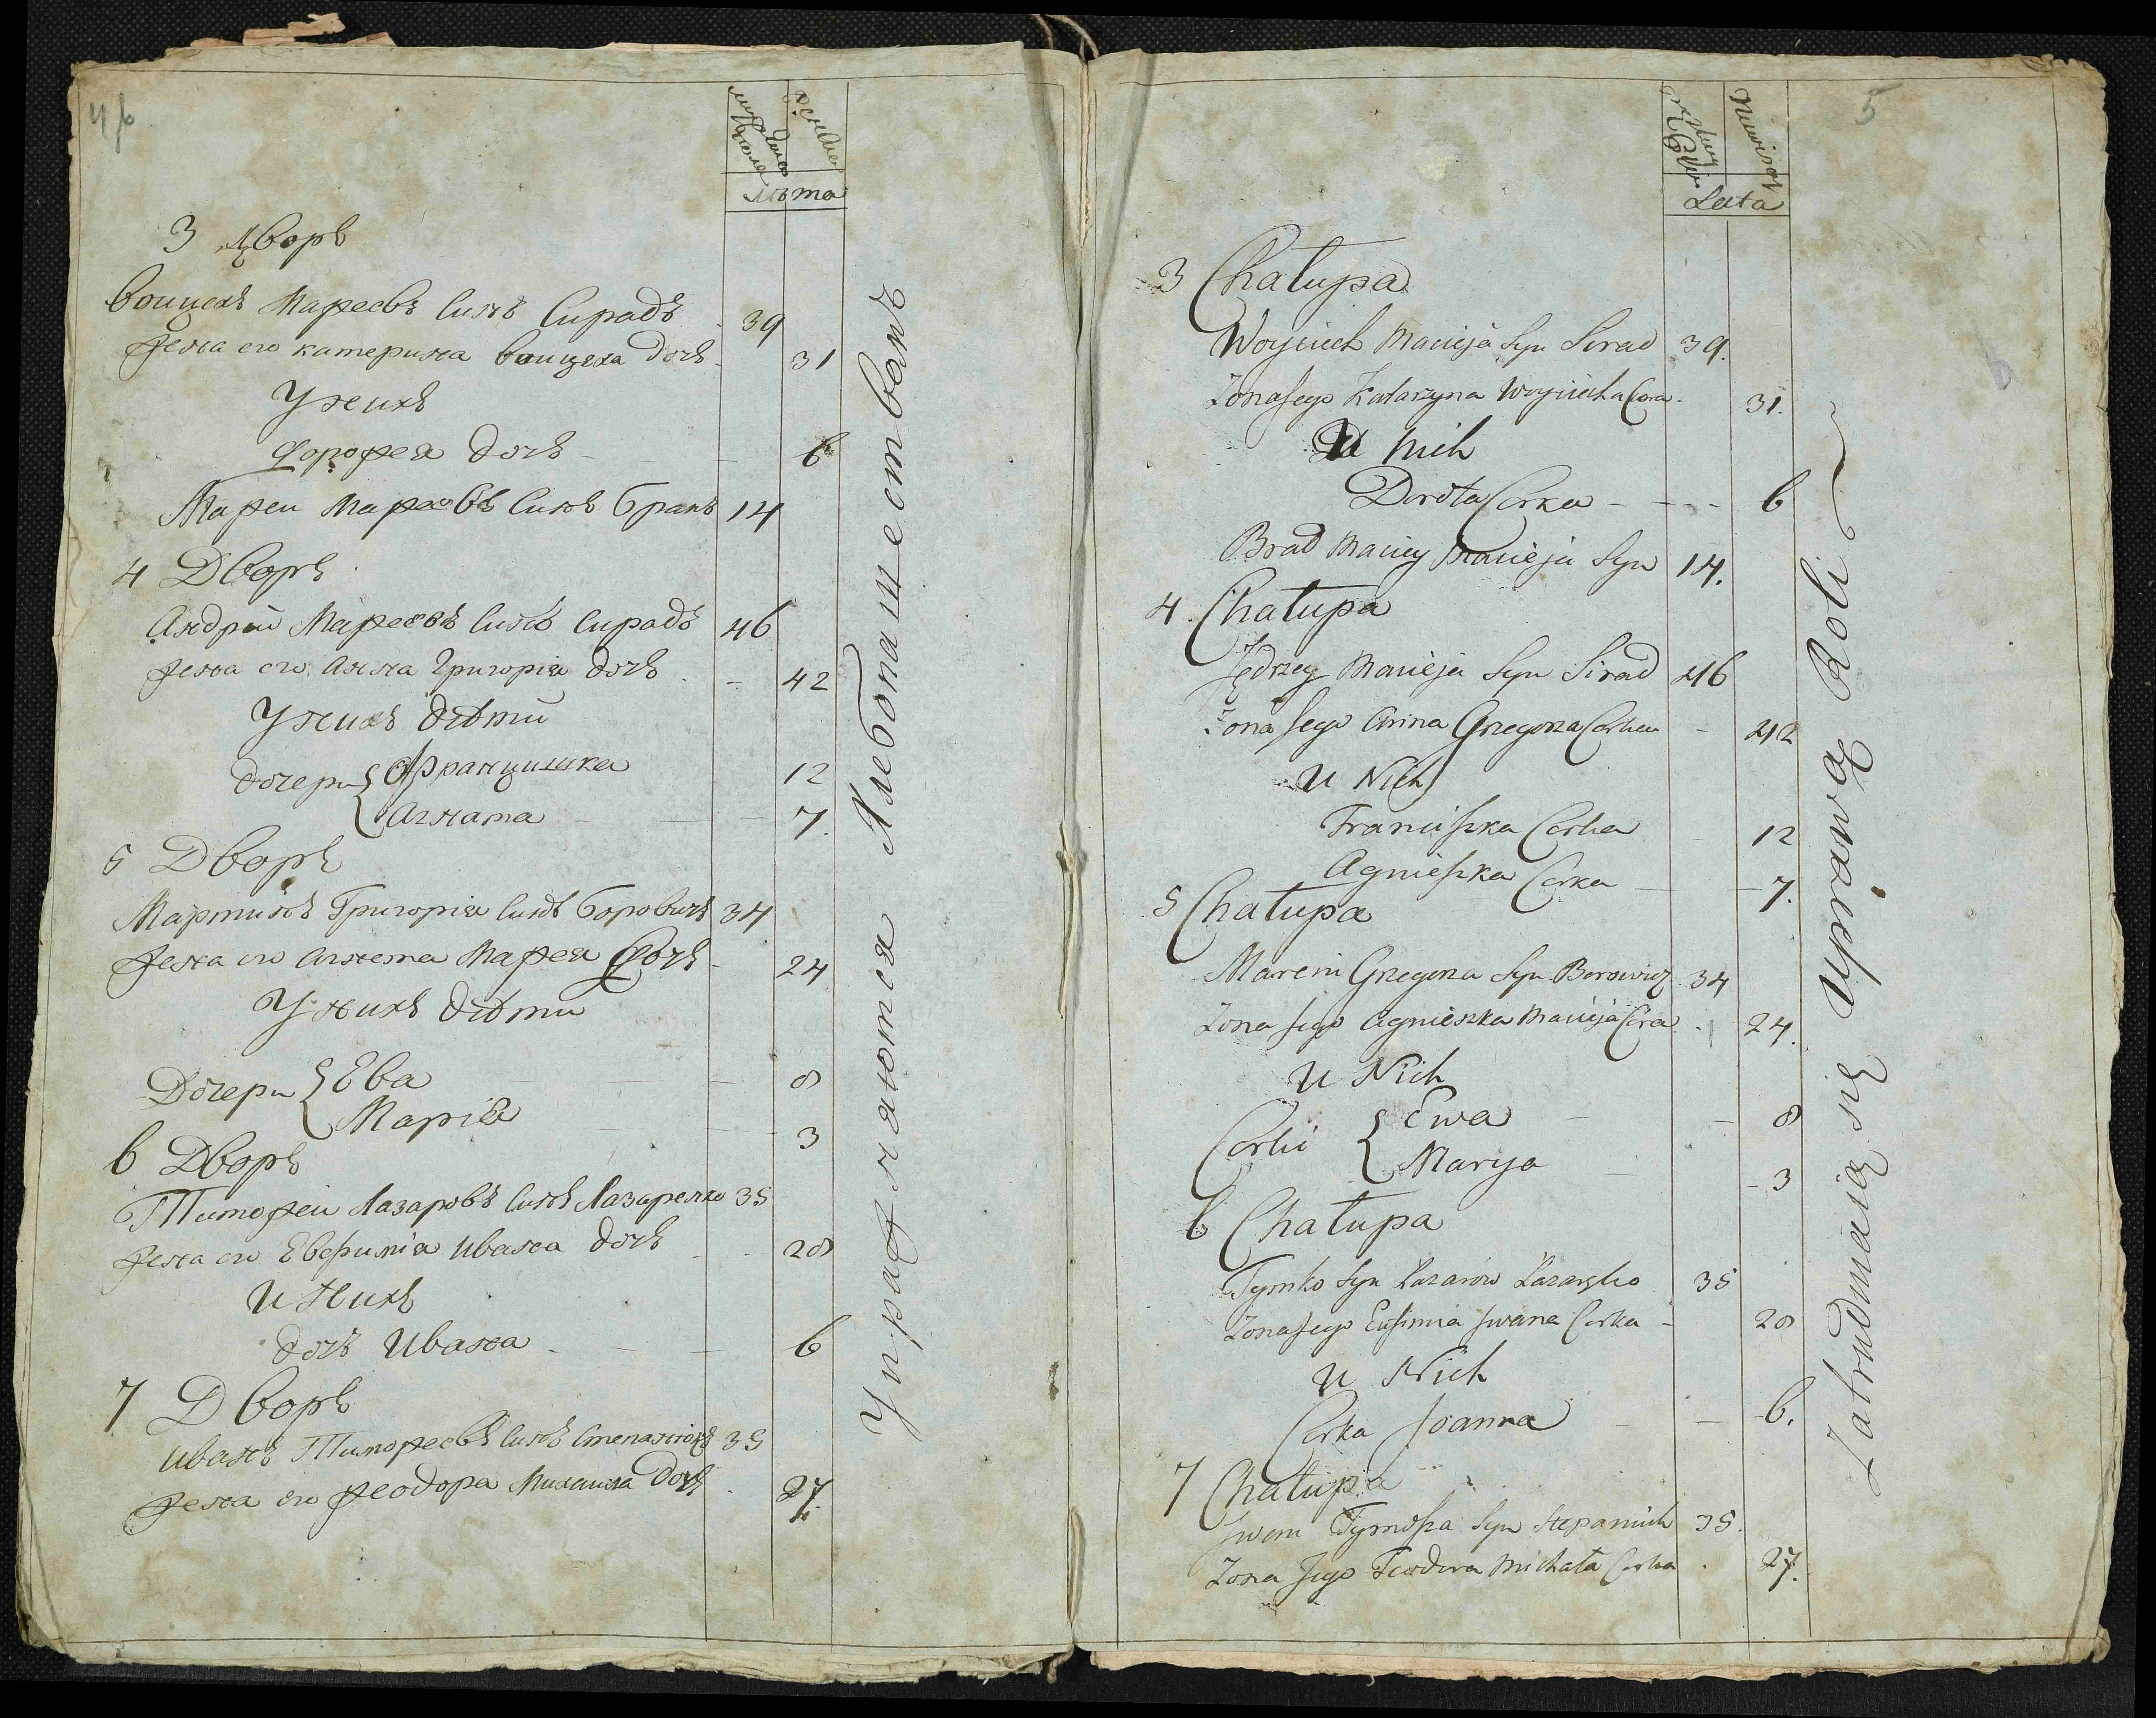 4
Лѣта
3 Дворъ
Воицехъ Мафеевъ Синъ Сирадъ 39
Жена его Катерина Воицеха дочь 31
У нихъ
Дорофея дочь 6
Мафеи Мафеевъ Синъ братъ 14
4 Дворъ
Андрѣй Мафеевъ Синъ Сирадъ 46
Жена его Анна Григорія дочь 42
У нихъ дѣти
дочери { Францишка 12
Агната 7.
5 Дворъ
Мартинъ Григорія Синъ Боровичъ 34
Жена его Агнета Мафея Дочь 24
У нихъ дѣти
Дочери { Ева 8
Марія 3
6 Дворъ
Тимофеи Лазаровъ Синъ Лазаренко 35
Жена его Евфимія Ивана дочь 28
У нихъ
дочь Ивана 6
7 Дворъ
Иванъ Тимофеевъ Синъ 35
Жена его Феодора Михаила дочь 27.
Упражняются хлебопашествомъ
5
Lata
3 Chałupa
Woyciech Macieja Syn Sirad 39.
Zona Jego Katarzyna Woyciecha Cora 31.
U Nich
Dorota Corka 6
Brad Maciey Macieja Syn 14.
4. Chałupa
Jędrzey Macieja Syn Sirad 46
Zona Jego Anna Gregorza Corka 42
U Nich
Franciszka Corka 12
Agnieszka Corka 7.
5 Chałupa
Marcin Gregorza Syn Borowicz 34
Zona Jego Agnieszka Macieja Cora 24.
U Nich
Corki { Ewa 8
Marya 3
6 Chałupa
Tymko Syn Łazarow 35
Zona Jego Eufimia Iwana Corka 28
U Nich
Corka Joanna 6.
7 Chałupa
Iwan Tymosza Syn Stepaniuk 35.
Zona Jego Teodora Michała Corka 27.
Zatrudniaią się uprawą Roli